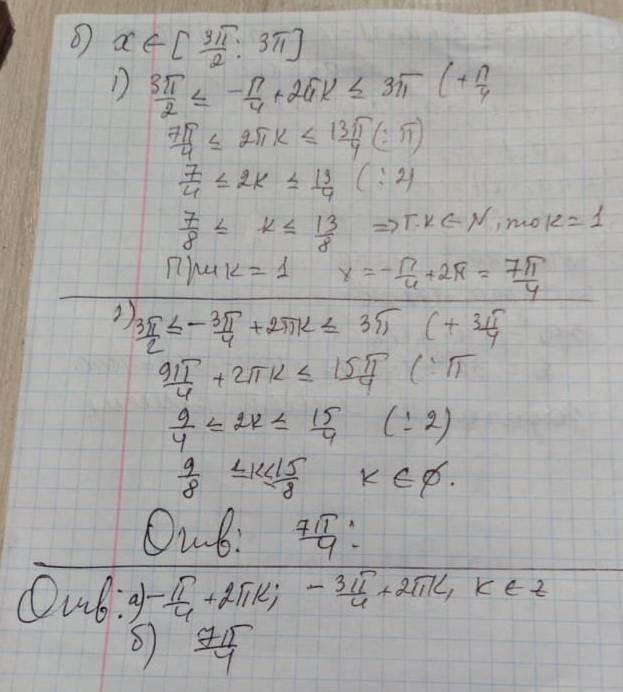 б) x ∈ [ 3π/2 ; 3π ]
1) 3π/2 ≤ -π/4 + 2πk ≤ 3π (+π/4
7π/4 ≤ 2πk ≤ 13π/4 (:π)
7/4 ≤ 2k ≤ 13/4 (:2)
7/8 ≤ k ≤ 13/8 => т.к ∈ N, то k = 1
При k = 1 x = -π/4 + 2π = 7π/4
2) 3π/2 ≤ -3π/4 + 2πk ≤ 3π (+ 3π/4
9π/4 + 2πk ≤ 15π/4 (:π
9/4 ≤ 2k ≤ 15/4 (:2)
9/8 ≤ k ≤ 15/8 k ∈ ∅.
Отв: 7π/4 :
Отв: а) -π/4 + 2πk; -3π/4 + 2πk, k ∈ z
б) 7π/4